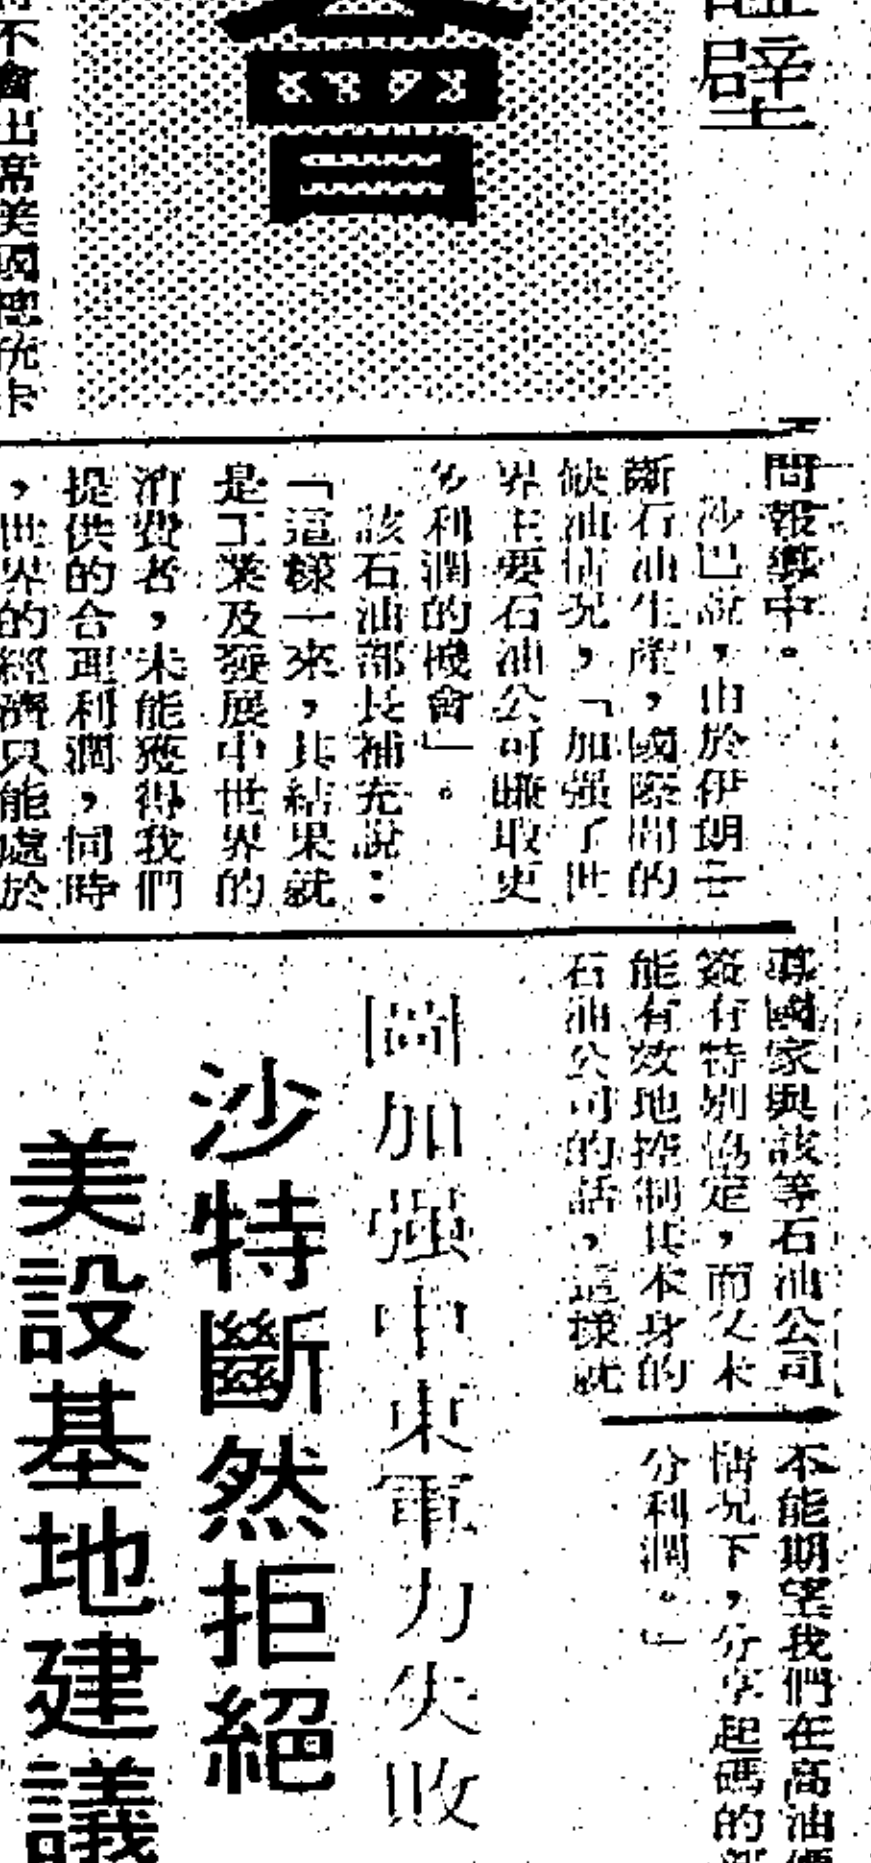 壁
會
不會出席美國總統卡
問報導中。
沙巴說，由於伊朗
斷石油生產，國際間的
缺油情況，「加强了世
界主要石油公司賺取更
多利潤的機會」。
該石油部長補充說：
「這樣一來，其結果就
是工業及發展中世界的
消費者，未能獲得我們
提供的合理利潤，同時
，世界的經濟只能處於
國家與該等石油公司
簽有特別協定，而又未
能有效地控制其本身的
石油公司的話，這樣就
不能期望我們在高油價
情況下，分享起碼的部
分利潤。」
圖加强中東軍力失敗
沙特斷然拒絕
美設基地建議